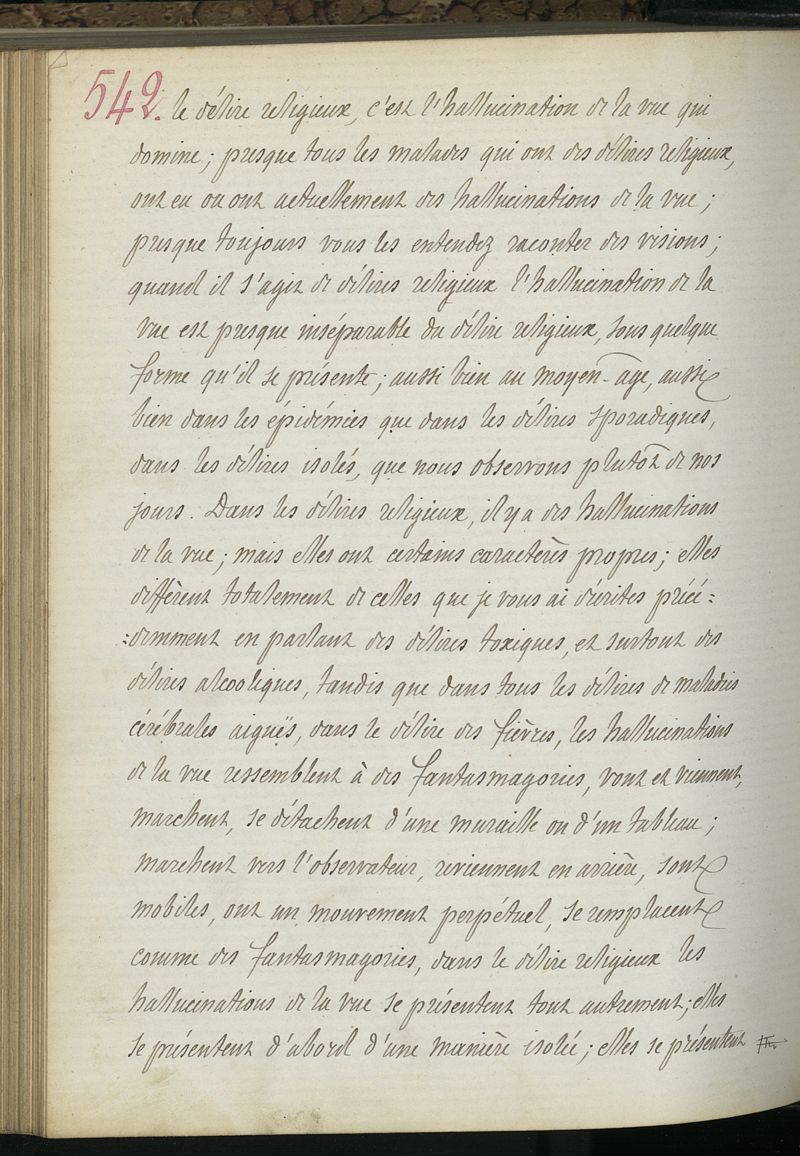 542. le délire religieux, c'est l'hallucination de la vue qui
domine; presque tous les malades qui ont des délires religieux,
ont eu ou ont actuellement des hallucinations de la vue;
presque toujours vous les entendez raconter des visions;
quand il s'agit de délires religieux l'hallucination de la
vue est presque inséparable du délire religieux, sous quelque
forme qu'il se présente; aussi bien au moyen-âge, aussi
bien dans les épidémies que dans les délires sporadiques,
dans les délires isolés, que nous observons plutôt de nos
jours. Dans les délires religieux, il y a des hallucinations
de la vue; mais elles ont certains caractères propres; elles
diffèrent totalement de celles que je vous ai décrites précé=
=demment en parlant des délires toxiques, et surtout des
délires alcooliques, tandis que dans tous les délires de maladies
cérébrales aiguës, dans le délire des fièvres, les hallucinations
de la vue ressemblent à des fantasmagories, vont et viennent,
marchent, se détachent d'une muraille ou d'un tableau;
marchent vers l'observateur, reviennent en arrière, sont
mobiles, ont un mouvement perpétuel, se remplacent
comme des fantasmagories, dans le délire religieux les
hallucinations de la vue se présentent tout autrement; elles
se présentent d'abord d'une manière isolée; elles se présentent